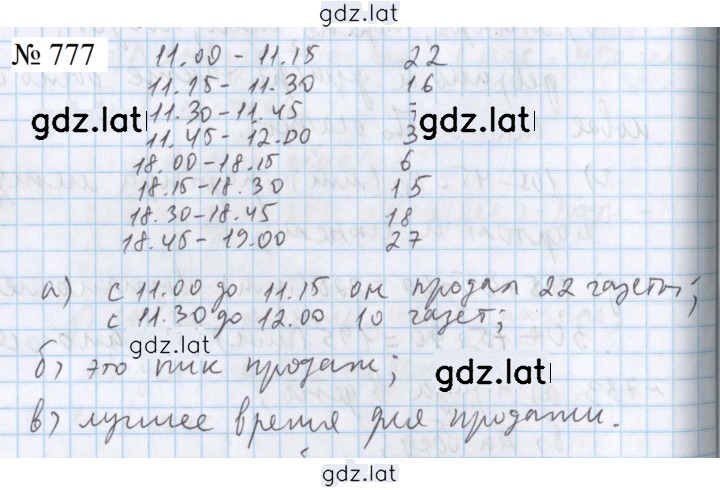 gdz.lat
№ 777
11.00 – 11.15 22
11.15 – 11.30 16
11.30 – 11.45
gdz.lat gdz.lat
11.45 – 12.00 3
18.00 – 18.15 6
18.15 – 18.30 15
18.30 – 18.45 18
18.45 – 19.00 27
а) с 11.00 до 11.15 он продал 22 газеты;
с 11.30 до 12.00 10 газет;
gdz.lat
б) это пик продаж;
gdz.lat
в) лучшее время для продажи.
gdz.lat